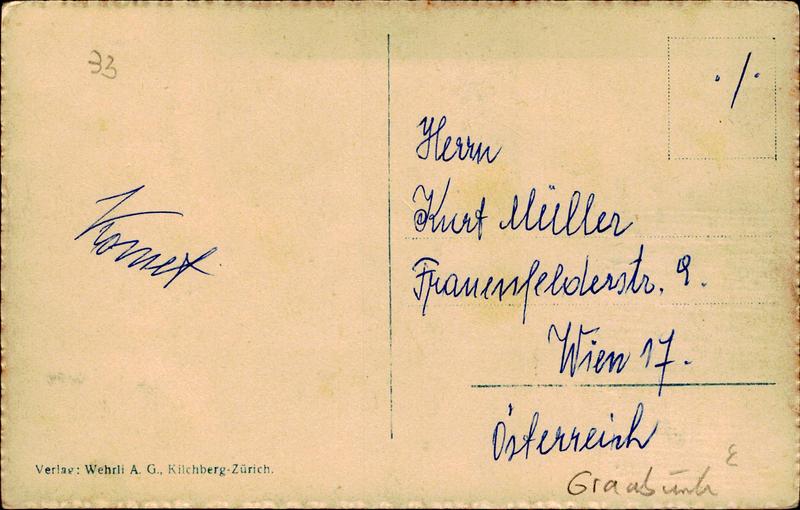 33
./.
Herrn
Kurt Müller
Frauenfelderstr. 2.
Wien 17.
Österreich
Komet
Verlag: Wehrli A. G., Kilchberg-Zürich.